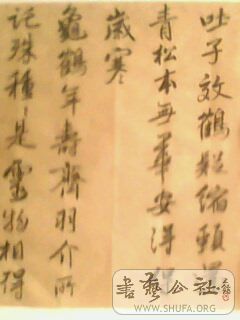 吐子效鶴疑縮頸還
青松本無華安得
歲寒
龜鶴年壽齊羽介所
託殊種〻是靈物相得
書藝公社
WWW.SHUFA.ORG